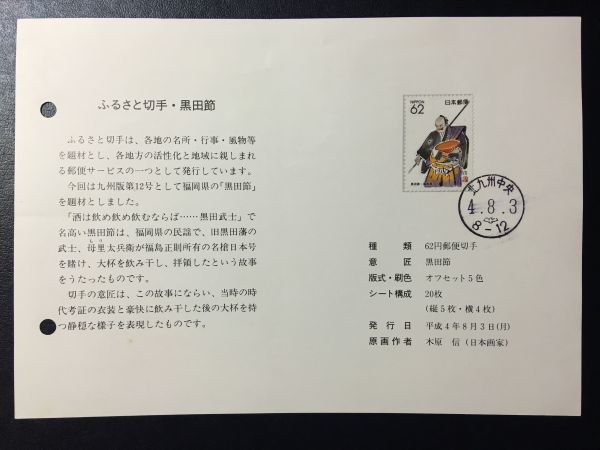 ふるさと切手・黒田節
ふるさと切手は、各地の名所・行事・風物等
を題材とし、各地方の活性化と地域に親しまれ
る郵便サービスの一つとして発行しています。
今回は九州版第12号として福岡県の「黒田節」
を題材としました。
「酒は飲め飲め飲むならば……黒田武士」で
名高い黒田節は、福岡県の民謡で、旧黒田藩の
武士、母里太兵衛が福島正則所有の名槍日本号
を賭け、大杯を飲み干し、拝領したという故事
をうたったものです。
切手の意匠は、この故事にならい、当時の時
代考証の衣装と豪快に飲み干した後の大杯を持
つ静穏な様子を表現したものです。
NIPPON 日本郵便
62
北九州中央
4.8.3
8-12
種類 62円郵便切手
意匠 黒田節
版式・刷色 オフセット5色
シート構成 20枚
(縦5枚・横4枚)
発行日 平成4年8月3日(月)
原画作者 木原 信(日本画家)